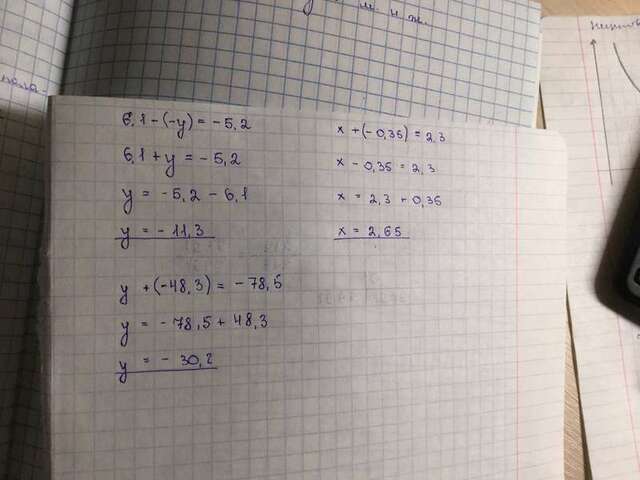 м. н ж.
6,1-(-y) = -5,2
6,1 + y = -5,2
y = -5,2 - 6,1
y = -11,3
y + (-48,3) = -78,5
y = -78,5 + 48,3
y = -30,2
x + (-0,35) = 2,3
x - 0,35 = 2,3
x = 2,3 + 0,35
x = 2,65